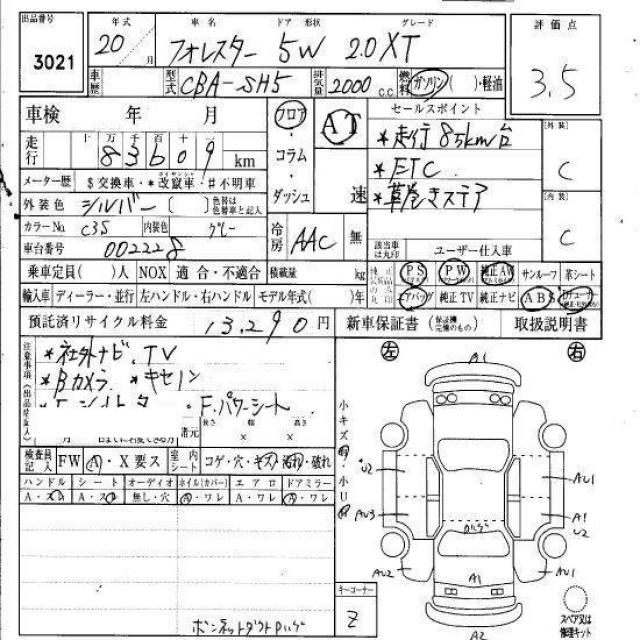 出品番号 年式 車名 ドア 形状 グレード 評価点
3021 20 月 フォレスター 5W 2.0XT 3.5
車歴 型式 CBA-SH5 排気量 2000 c.c. 燃料 ガソリン( )・軽油
車検 年 月 フロア・コラム・ダッシュ AT 速 セールスポイント
走行 十 万 千 百 十 一 *走行85km台 外装
83609 km *ETC C
メーター歴 $交換車・*改竄車・#不明車 *革巻きステア 内装
外装色 シルバー ( ) 色替は色替車と記入 C
カラーNo. C35 内装色 グレー 冷房 AAC 無
車台番号 002228 該当車は丸印 ユーザー仕入車
乗車定員( )人 NOX 適合・不適合 積載量 kg PS PW 純正AW サンルーフ 革シート
輸入車 ディーラー・並行 左ハンドル・右ハンドル モデル年式( )年 エアバッグ 純正TV 純正ナビ ABS
預託済リサイクル料金 13,290円 新車保証書 取扱説明書
注意事項(出品店記入) *社外ナビ、TV 左 右
*Bカメラ *キセノン
・F.パワーシート
諸元 長さ 幅 高さ
× ×
検査員記入 FW A・X要ス 室内シート コゲ・穴・キズ・汚れ・破れ
ハンドル シート オーディオ ホイル(カバー) エアロ ドアミラー
A・スレ A・スレ 無し・穴 A・ワレ A・ワレ A・ワレ
小キズ 小U
A1
U2 AU1
AU3 A1
U2
AU2 A1 AU1
A2
キーコーナー
Z
スペア又は修理キット